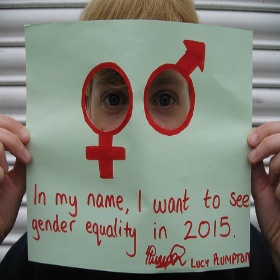 In my name, I want to see
gender equality in 2015.
LUCY PLUMPTON